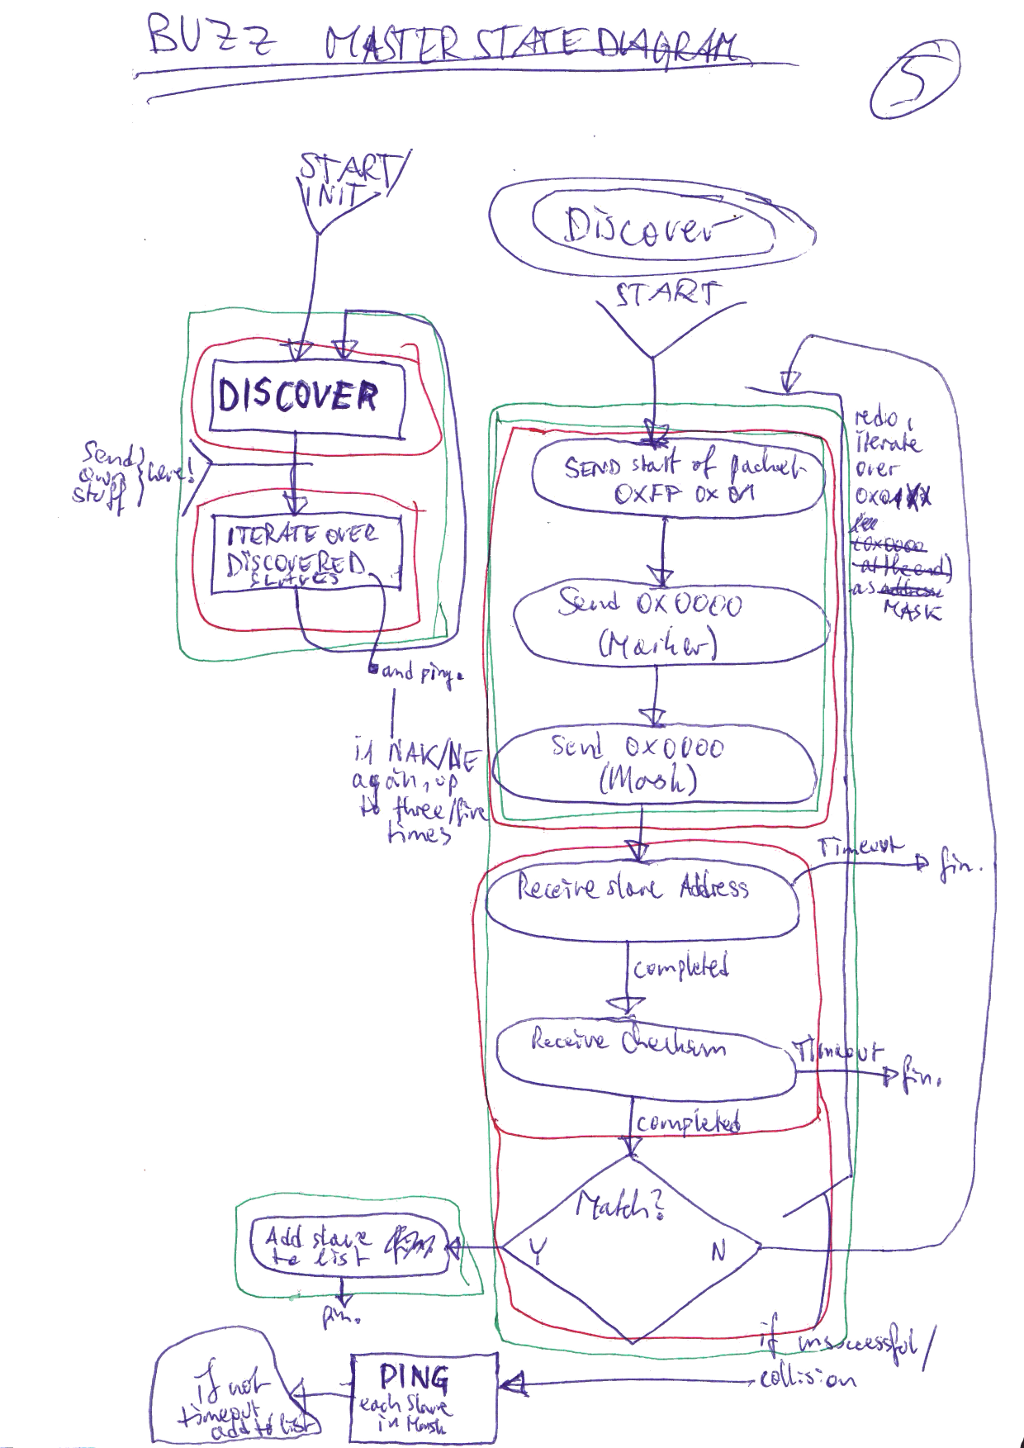 BUZZ MASTER STATE DIAGRAM
5
START/
INIT
DISCOVER
Send
own
stuff
here!
ITERATE OVER
DISCOVERED
SLAVES
and ping.
if NAK/NE
again, up
to three/five
times
Discover
START
SEND start of packet
0XFP 0x01
Send 0X0000
(Marker)
Send 0X0000
(Mask)
redo,
iterate
over
(0x0000
at the end)
as address
MASK
Receive slave Address
Timeout
fin.
completed
Receive Checksum
Timeout
fin.
completed
Match?
Y
N
Add slave
to list
fin.
if unsuccessful/
collision
PING
each slave
in Mask
if not
timeout
add to list